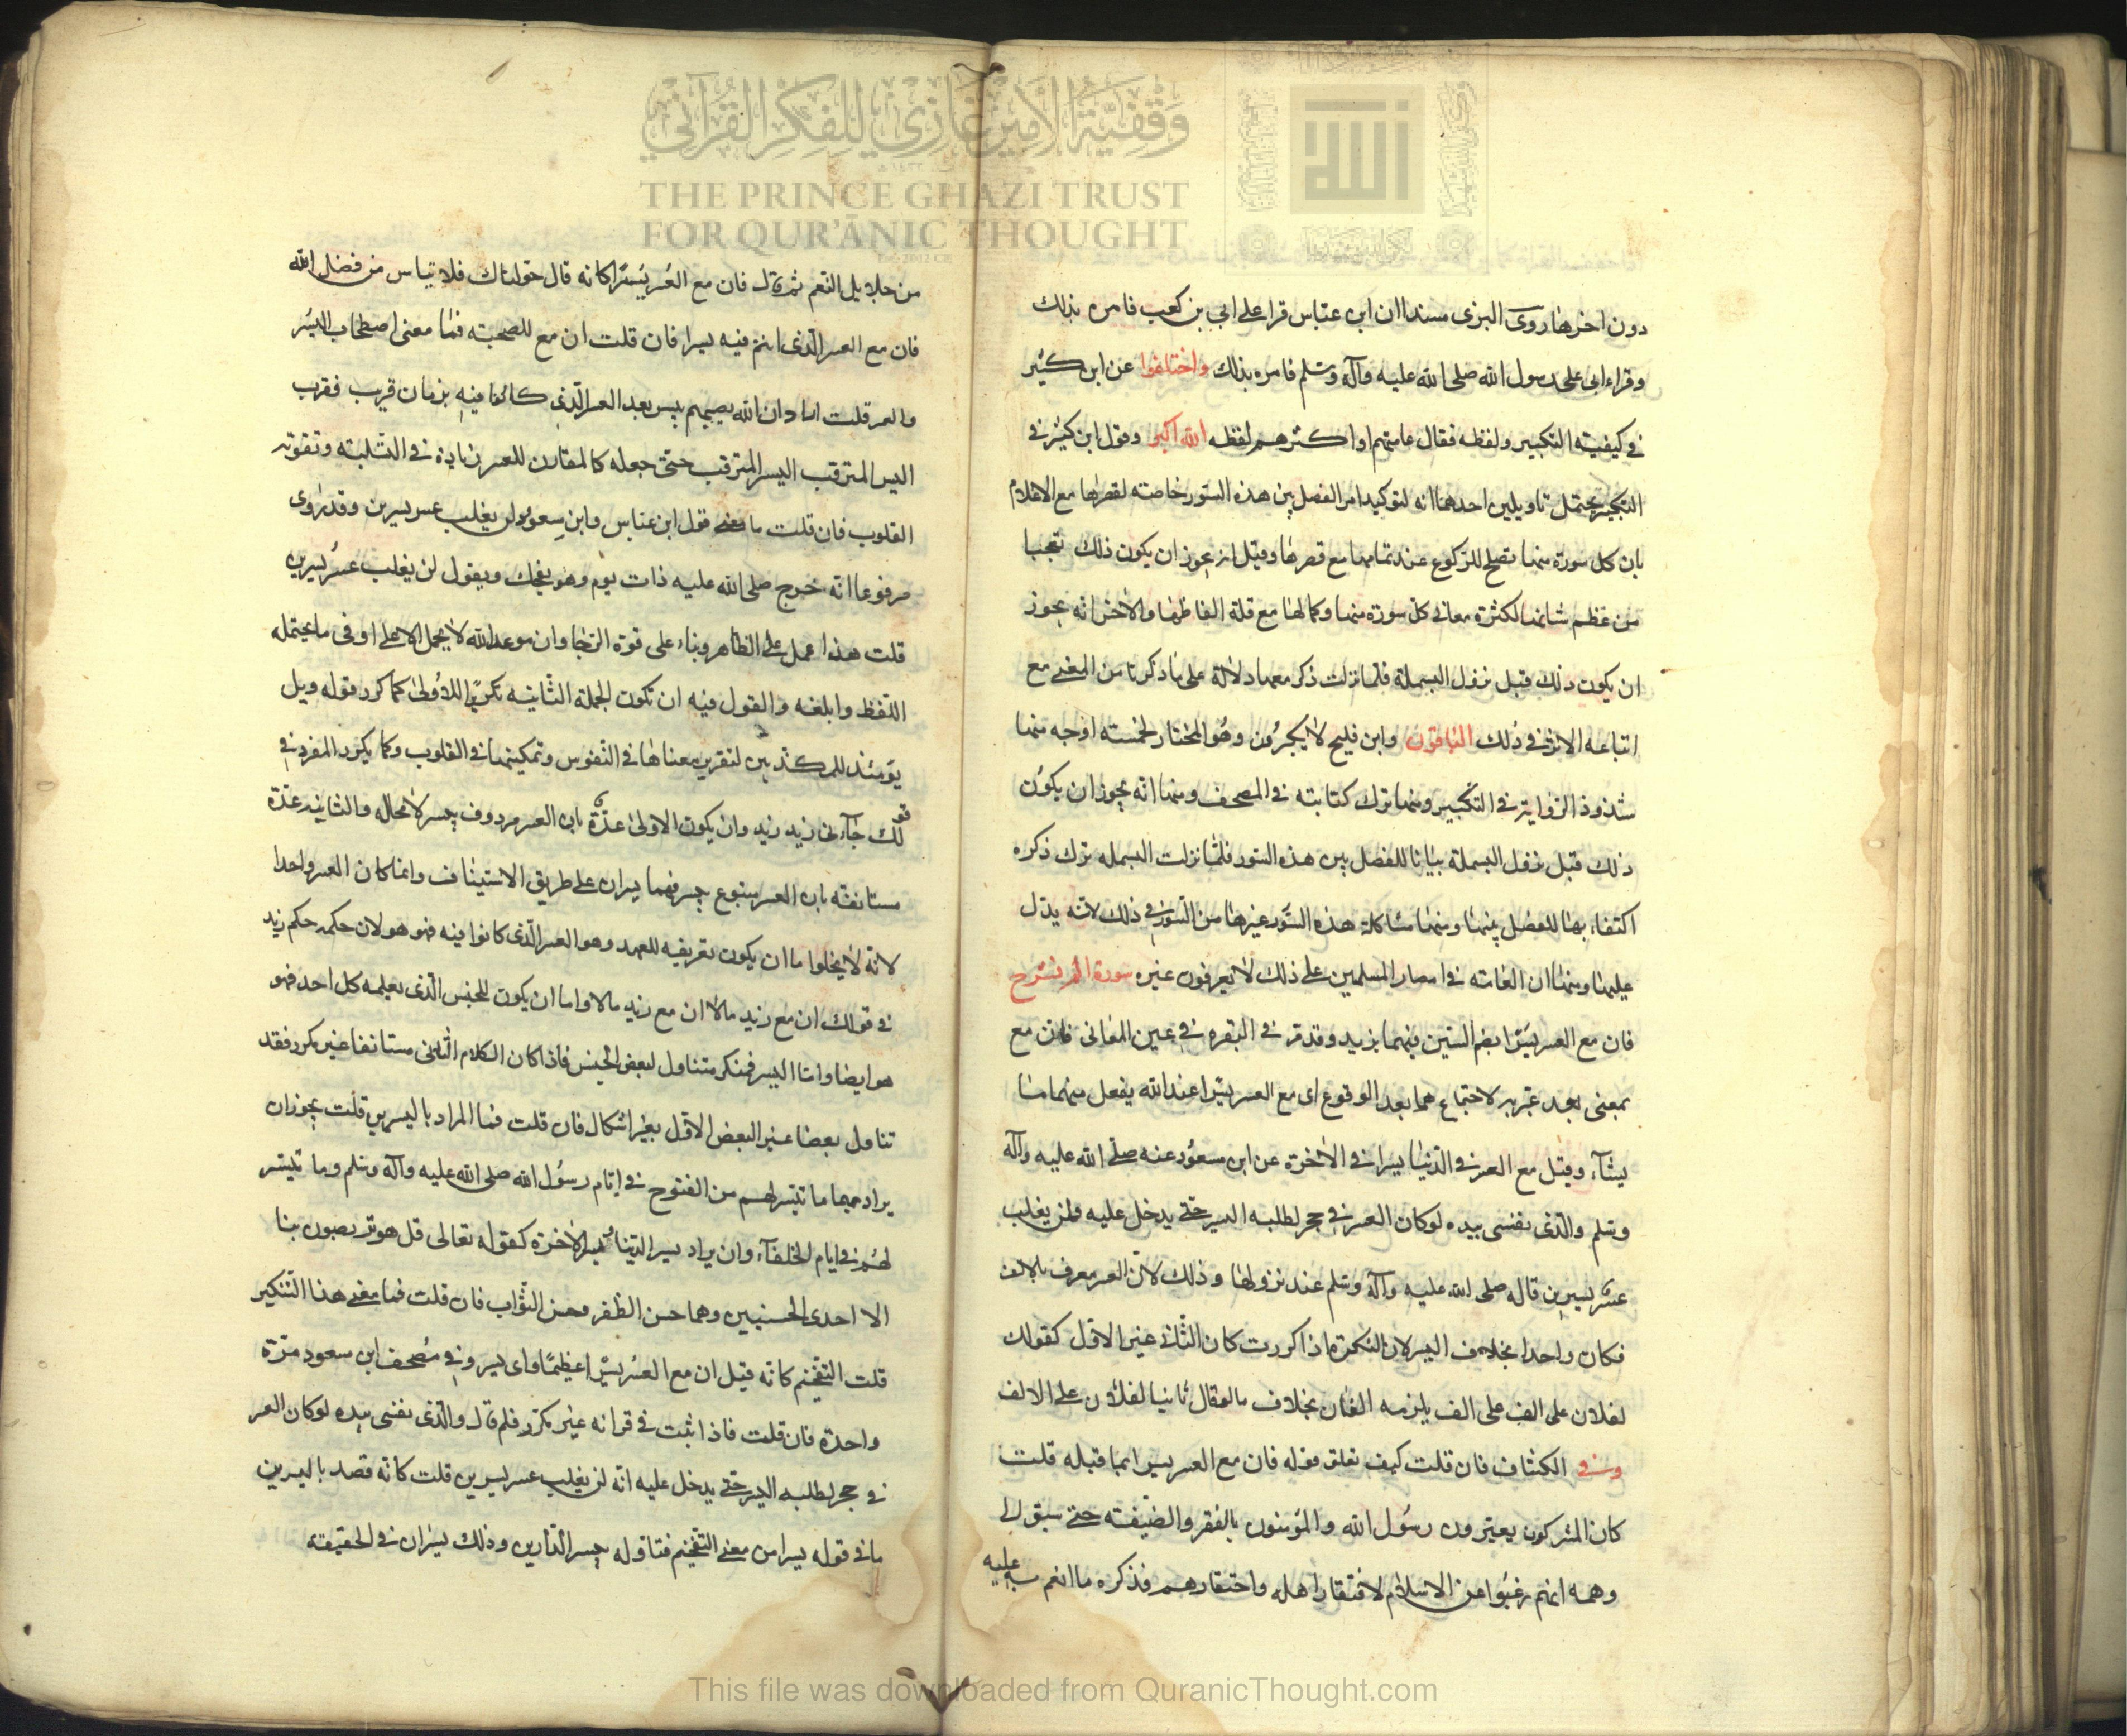 وقفية الأمير غازي للفكر القرآني
THE PRINCE GHAZI TRUST
FOR QUR'ĀNIC THOUGHT
دون اخرها روى البزى مسندا ان ابن عباس قرا على ابي بن كعب فامره بذلك
وقراء ابى على رسول الله صلى الله عليه وآله وسلم فامره بذلك واختلفوا عن ابن كثير
في كيفيته التكبير ولفظه فقال عامتهم او اكثرهم لفظه الله اكبر وقول ابن كثير في
التكبير يحتمل تاويلين احدهما انه لتوكيد امر الفصل بين هذه السور خاصته لقصرها مع الاعلام
بان كل سورة منها تصلح للركوع عند تمامها مع قصرها وقيل انه يجوز ان يكون ذلك تعجبا
من عظم شانها لكثرة معانى كل سورة منها وكمالها مع قلة الفاظها والاخر انه يجوز
ان يكون ذلك قبل نزول البسملة فلما نزلت ذكر معها دلالة على ما ذكرنا من المعنى مع
اتباعه الاثر في ذلك الباقون وابن فليح لا يكبرون وهو المختار لخمسته اوجه منها
شذوذ الرواية في التكبير ومنها ترك كتابته في المصحف ومنها انه يجوز ان يكون
ذلك قبل نزول البسملة بيانا للفصل بين هذه السور فلما نزلت البسمله ترك ذكره
اكتفاء بها للفصل بينها ومنها مشاكلة هذه السور غيرها من السور في ذلك لانه يدل
عليها ومنها ان العامته في امصار المسلمين على ذلك لا يعرفون غيره سورة الم نشرح
فان مع العسر يسرا بضم السين فيهما يزيد وقد مر في البقره في عين المعانى فان مع
بمعنى بعد عبر به لاجتماعهما بعد الوقوع اى مع العسر يسرا عند الله يفعل منهما ما
يشآء وقيل مع العسر في الدنيا يسرا في الاخرة عن ابن مسعود عنه صلى الله عليه وآله
وسلم والذى نفسى بيده لو كان العسر في حجر لطلبه اليسر حتى يدخل عليه ولن يغلب
عسر يسرين قاله صلى الله عليه وآله وسلم عند نزولها وذلك لان العسر معرف بالالف
فكان واحدا بخلاف اليسر لان النكرة اذا كررت كان الثانى غير الاول كقولك
لفلان على الف على الف يلزمه الفان بخلاف ما لو قال ثانيا لفلان على الالف
وفي الكشاف فان قلت كيف تعلق قوله فان مع العسر يسرا بما قبله قلت
كان المشركون يعيرون رسول الله والمؤمنون بالفقر والضيقته حتى سبق الى
وهمه انهم رغبوا عن الاسلام لافتقار اهله واحتقارهم فذكره ما انعم به عليه
من جلايل النعم ثم قال فان مع العسر يسرا كانه قال خولناك فلا تياس من فضل الله
فان مع العسر الذى انتم فيه يسرا فان قلت ان مع للصحبته فما معنى اصطحاب اليسر
والعسر قلت اراد ان الله يصيبهم بيسر بعد العسر الذى كانوا فيه بزمان قريب فقرب
اليسر المترقب اليسر المترقب حتى جعله كالمقارن للعسر زيادة في التسلية وتقوية
القلوب فان قلت ما معنى قول ابن عباس وابن مسعود لن يغلب عسر يسرين وقد روى
مرفوعا انه خرج صلى الله عليه ذات يوم وهو يضحك ويقول لن يغلب عسر يسرين
قلت هذا عمل على الظاهر وبناء على قوة الرجا وان موعد الله لا يحمل الا على اوفى ما يحتمله
اللفظ وابلغه والقول فيه ان تكون الجملة الثانيه تكريرا للاولى كما كرر قوله ويل
يومئذ للمكذبين لتقرير معناها في النفوس وتمكينها في القلوب وكما يكرر المفرد في
قولك جآءنى زيد زيد وان يكون الاولى عدة بان العسر مردوف بيسر لا محاله والثانيه عدة
مستانفته بان العسر متبوع بيسر فهما يسران على طريق الاستيناف وانما كان العسر واحدا
لانه لا يخلوا ما ان يكون تعريفه للعهد وهو العسر الذى كانوا فيه فهو هو لان حكمه حكم زيد
في قولك ان مع زيد مالا ان مع زيد مالا واما ان يكون للجنس الذى يعلمه كل احد فهو
هو ايضا واما اليسر فمنكر متناول لبعض الجنس فاذا كان الكلام الثانى مستانفا غير مكرر فقد
تناول بعضا غير البعض الاول بغير اشكال فان قلت فما المراد باليسرين قلت يجوز ان
يراد بهما ما تيسر لهم من الفتوح في ايام رسول الله صلى الله عليه وآله وسلم وما تيسر
لهم في ايام الخلفآء وان يراد يسر الدنيا ويسر الاخرة كقوله تعالى قل هو تربصون بنا
الا احدى الحسنيين وهما حسن الظفر وحسن الثواب فان قلت فما معنى هذا التنكير
قلت التفخيم كانه قيل ان مع العسر يسرا عظيما واى يسر وفي مصحف ابن سعود مرة
واحدة فان قلت فاذا ثبت في قرانه غير مكرر فلم قال والذى نفسى بيده لو كان العسر
في حجر لطلبه اليسر حتى يدخل عليه انه لن يغلب عسر يسرين قلت كانه قصد باليسرين
ما في قوله يسرا من معنى التفخيم فتاوله بيسر الدارين وذلك يسران في الحقيقة
This file was downloaded from QuranicThought.com